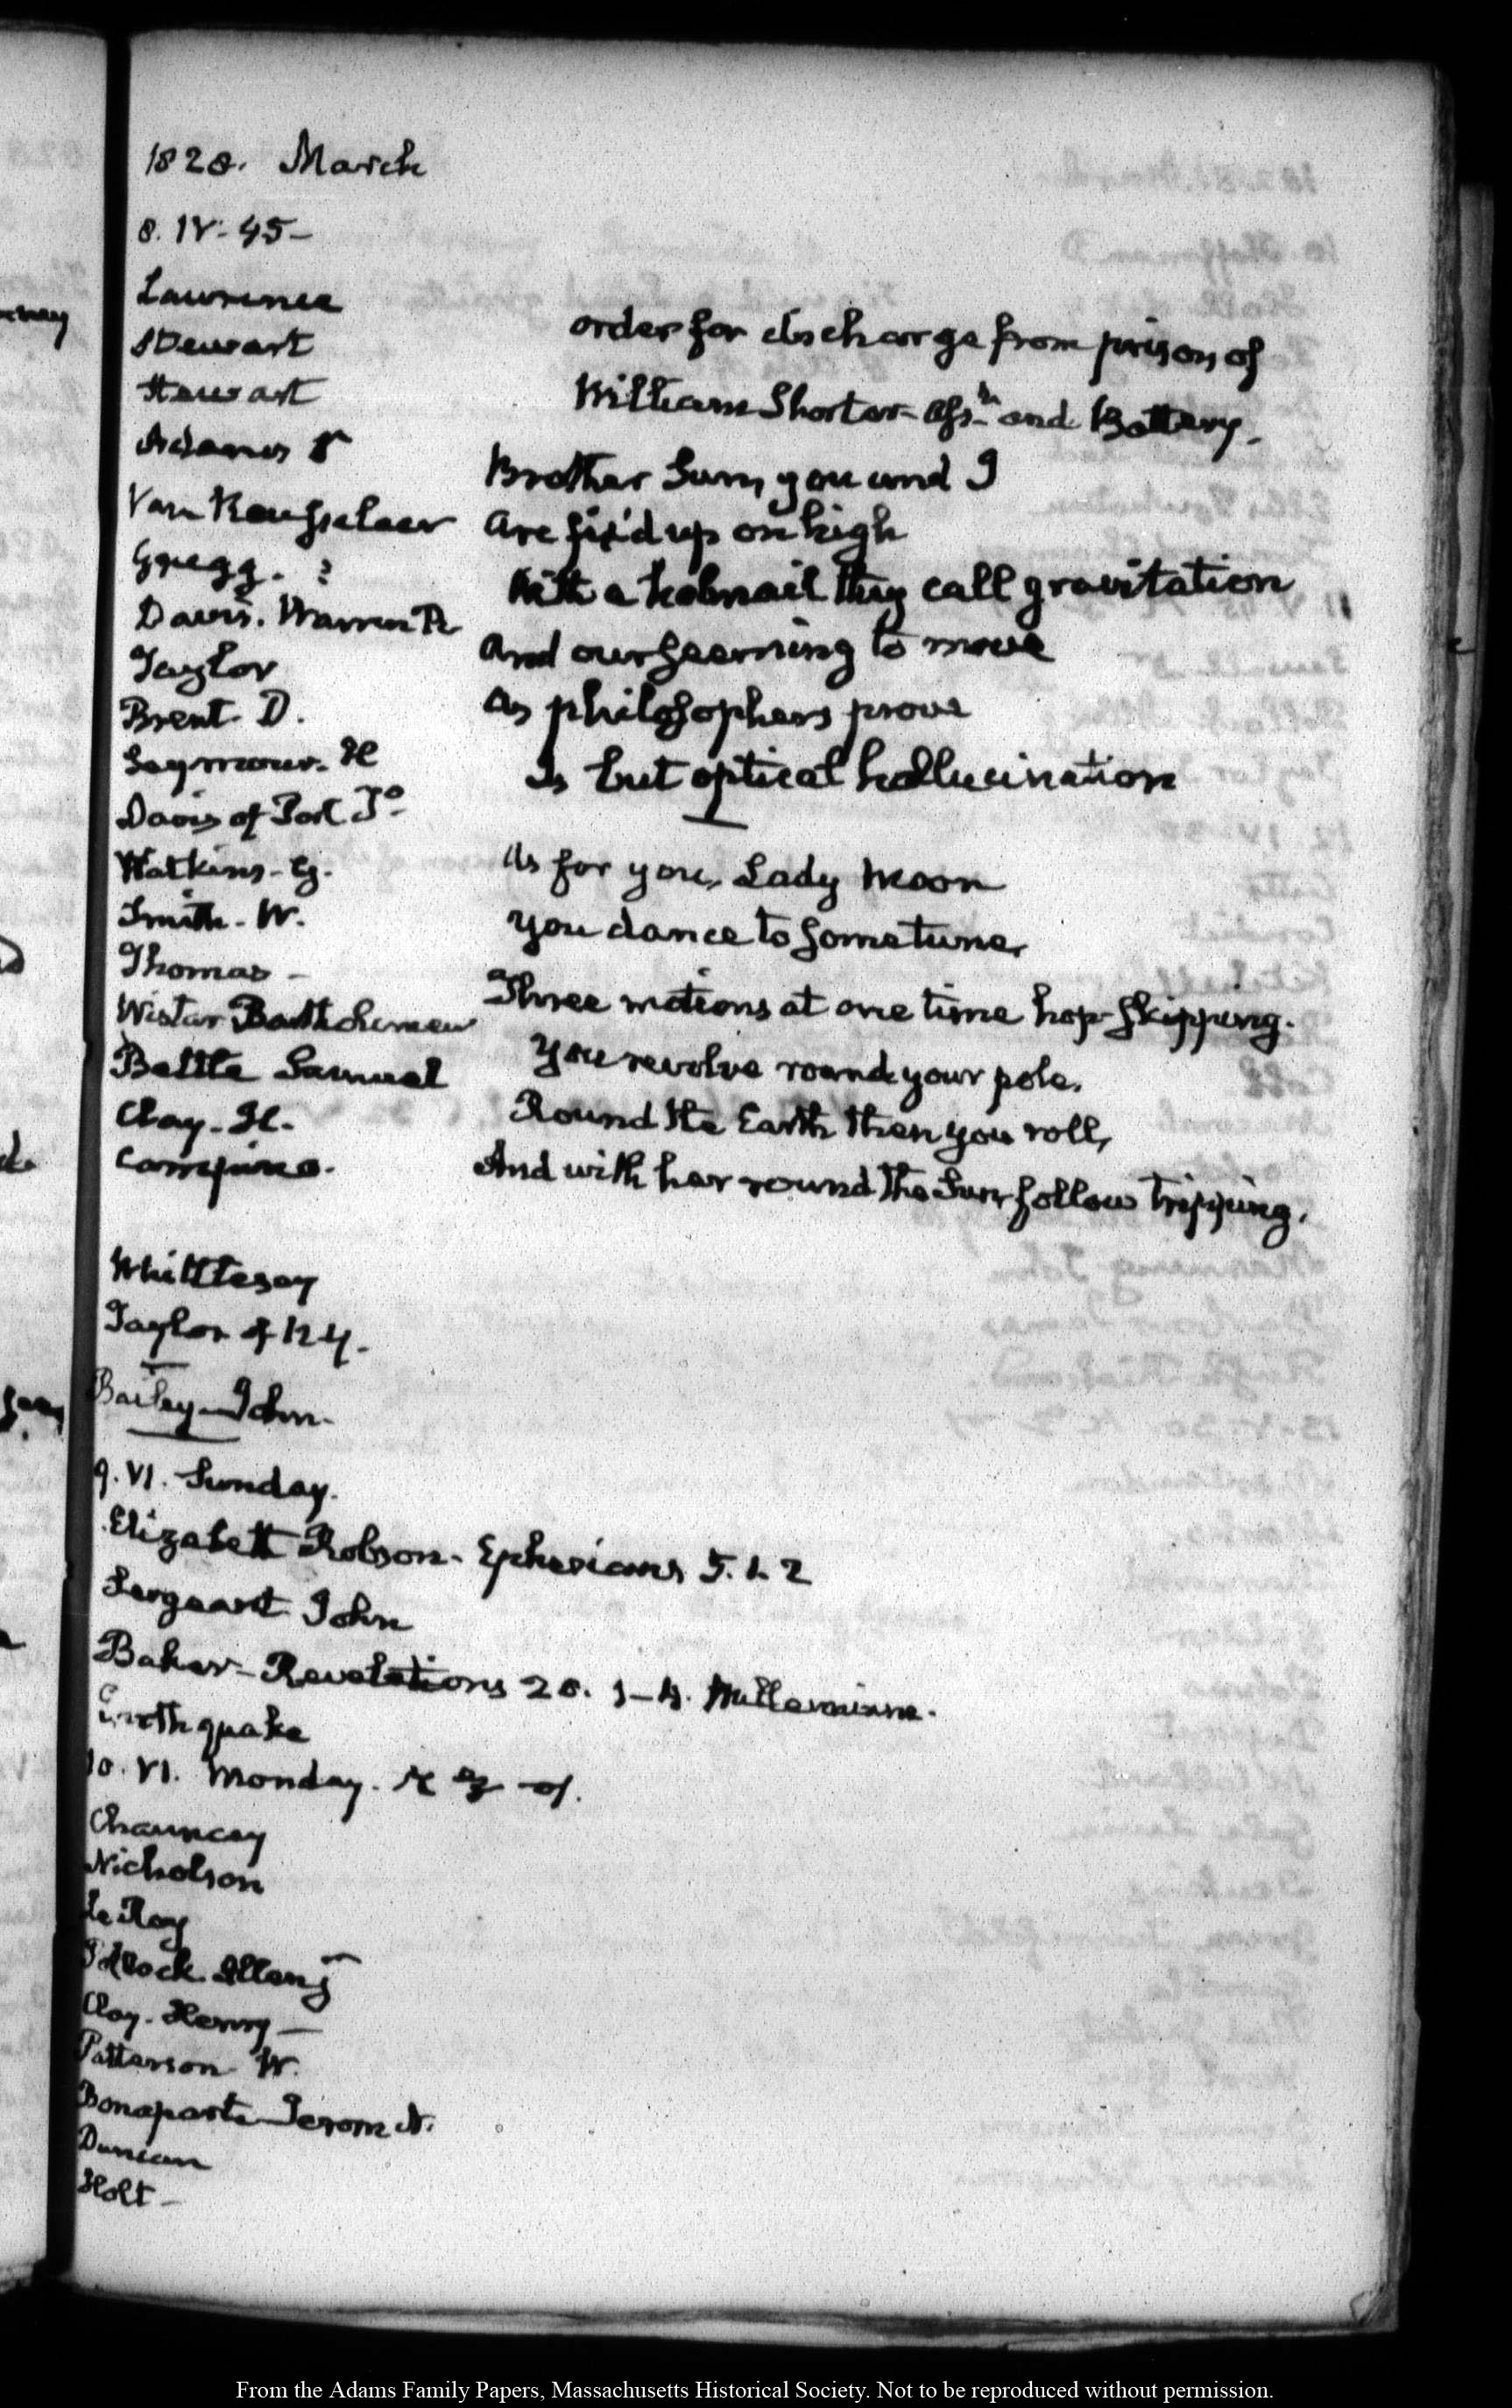 1828. March
8. IV. 45 -
Lawrence
Stewart
Stewart
Adams
Van Rensselaer
Gregg. ?
Davis. Warren R
Taylor
Brent. D.
Seymour. H
Davis of Port
Watkins. G.
Smith. W.
Thomas -
Wistar Bartholomew
Bettle Samuel
Clay. H.
order for discharge from prison of
William Shorter Assn. and Battery.
Brother Sun, you and I
Are fix'd up on high
With a hobnail they call gravitation
And our seeming to move
As philosophers prove
Is but optical hallucination
As for you, Lady Moon
You dance to some tune,
Three motions at one time hop-skipping.
You revolve round your pole,
Round the Earth then you roll,
And with her round the Sun follow tripping.
Whittlesey
Taylor of N.Y.
Bailey John.
9. VI. Sunday.
Elizabeth Robson. Ephesians 5. 1. 2
Sergeant John
Baker - Revelations 20. 1-4. Millennium.
Earthquake
10. VI. Monday.
Chauncey
Nicholson
Le Roy
Clay. Henry -
Patterson W.
Bonaparte Jerom N.
Duncan
Holt -
From the Adams Family Papers, Massachusetts Historical Society. Not to be reproduced without permission.